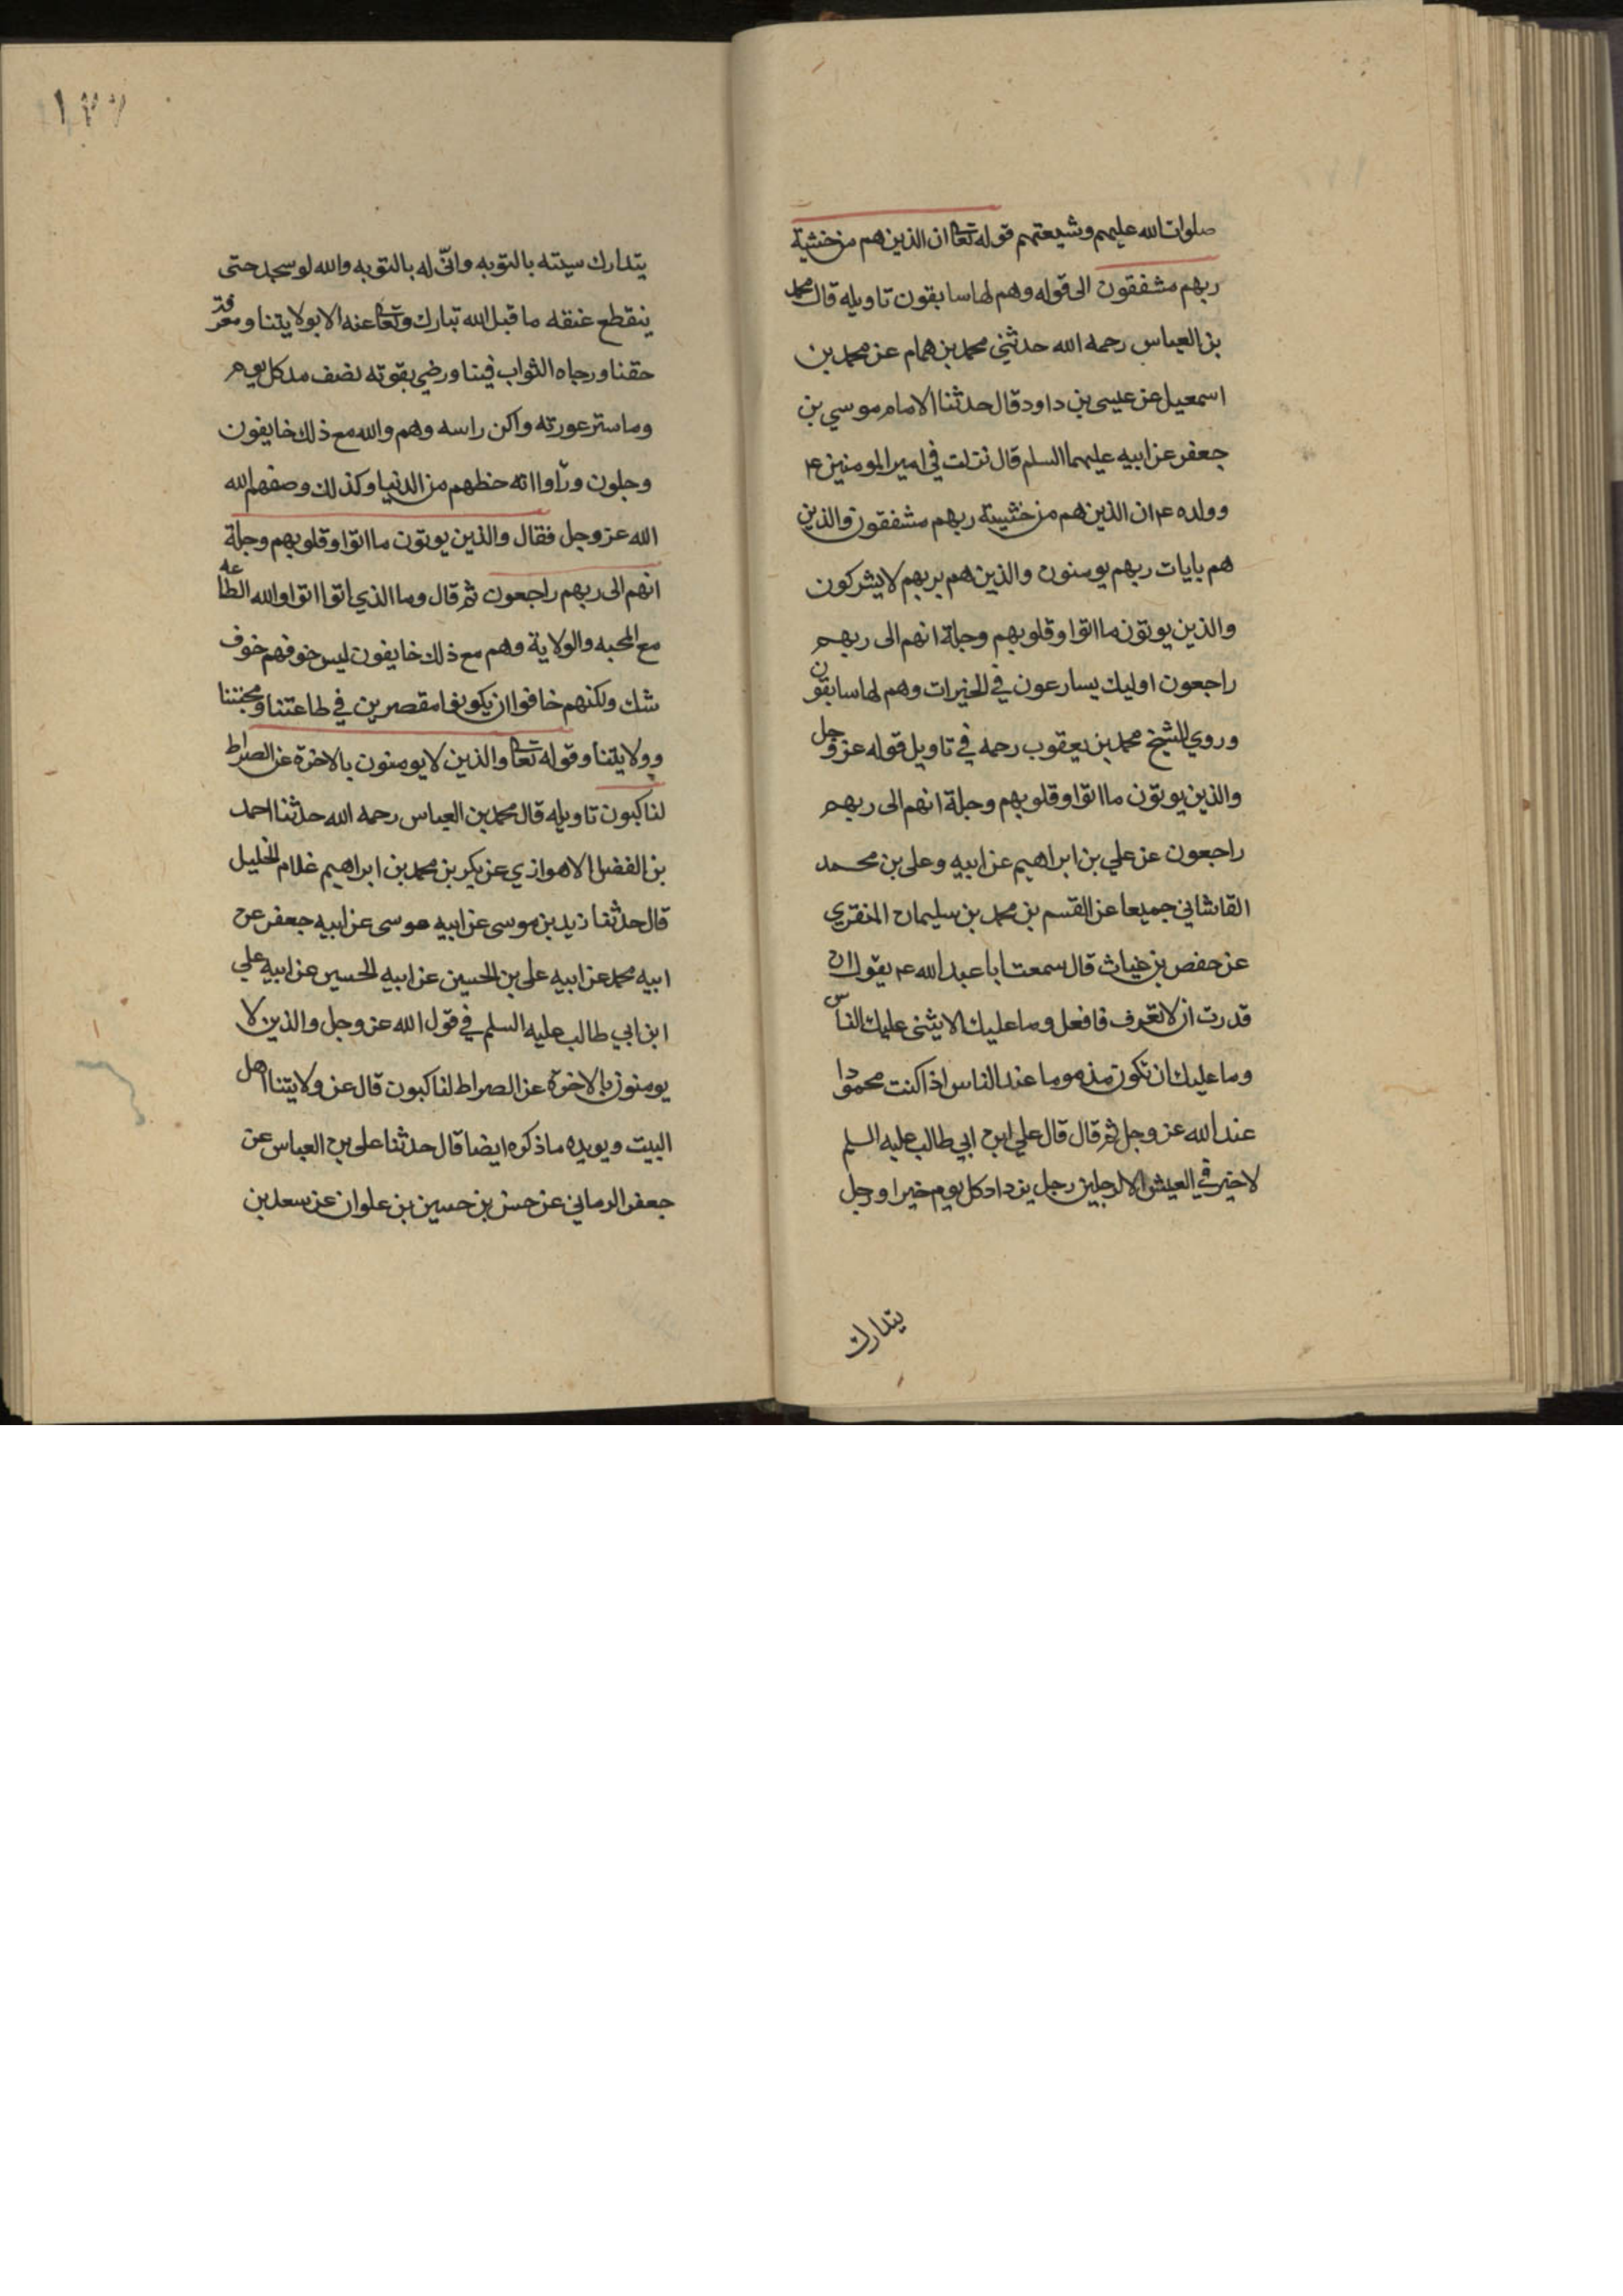 صلوات الله عليهم وشيعتهم قوله تعا ان الذين هم من خشية
ربهم مشفقون الى قوله وهم لها سابقون تاويله قال محمد
بن العباس رحمه الله حدثني محمد بن همام عن محمد بن
اسمعيل عن عيسى بن داود قال حدثنا الامام موسي بن
جعفر عن ابيه عليهما السلم قال نزلت في امير المومنين ع
وولده ع ان الذين هم من خشيية ربهم مشفقون والذين
هم بايات ربهم يومنون والذين هم بربهم لا يشركون
والذين يوتون ما اتوا وقلوبهم وجلة انهم الى ربهم
راجعون اوليك يسارعون في الخيرات وهم لها سابقون
وروي الشيخ محمد بن يعقوب رحمه في تاويل قوله عز وجل
والذين يوتون ما اتوا وقلوبهم وجلة انهم الى ربهم
راجعون عن علي بن ابراهيم عن ابيه وعلى بن محمد
القاشاني جميعا عن القسم بن محمد بن سليمان المنقري
عن حفص بن غياث قال سمعت ابا عبد الله ع يقول ان
قدرت ان لا تعرف فافعل وما عليك الا يثنى عليك الناس
وما عليك ان تكون مذموما عند الناس اذا كنت محمودا
عند الله عز وجل ثم قال قال علي ابن ابي طالب عليه السلم
لا خير في العيش الا لرجلين رجل يزداد كل يوم خيرا ورجل
يتدارك
١٣٧
يتدارك سيته بالتوبه وانّى له بالتوبه والله لو سجد حتى
ينقطع عنقه ما قبل الله تبارك وتعا عنه الا بولايتنا ومن عرف
حقنا ورجاه الثواب فينا ورضي بقوته نصف مد كل يوم
وما ستر عورته واكن راسه وهم والله مع ذلك خايفون
وجلون ودّوا انه حظهم من الدنيا وكذلك وصفهم الله
الله عز وجل فقال والذين يوتون ما اتوا وقلوبهم وجلة
انهم الى ربهم راجعون ثم قال وما الذي اتوا اتوا والله الطاعه
مع المحبه والولاية وهم مع ذلك خايفون ليس خوفهم خوف
شك ولكنهم خافوا ان يكونوا مقصرين في طاعتنا ومحبتنا
وولايتنا وقوله تعا والذين لا يومنون بالاخرة عن الصراط
لناكبون تاويله قال محمد بن العباس رحمه الله حدثنا احمد
بن الفضل الاهوازي عن بكر بن محمد بن ابراهيم غلام الخليل
قال حدثنا زيد بن موسى عن ابيه موسى عن ابيه جعفر عن
ابيه محمد عن ابيه على بن الحسين عن ابيه الحسين عن ابيه علي
ابن ابي طالب عليه السلم في قول الله عز وجل والذين لا
يومنون بالاخرة عن الصراط لناكبون قال عن ولايتنا اهل
البيت ويويده ما ذكره ايضا قال حدثنا على بن العباس عن
جعفر الرماني عن حسن بن حسين بن علوان عن سعد بن